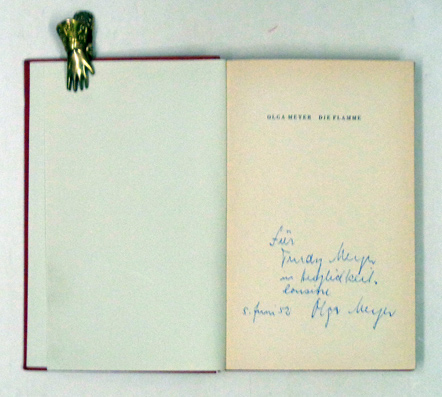 OLGA MEYER DIE FLAMME
Für
Trudy Meyer
in Herzlichkeit.
5. Juni 52 Olga Meyer